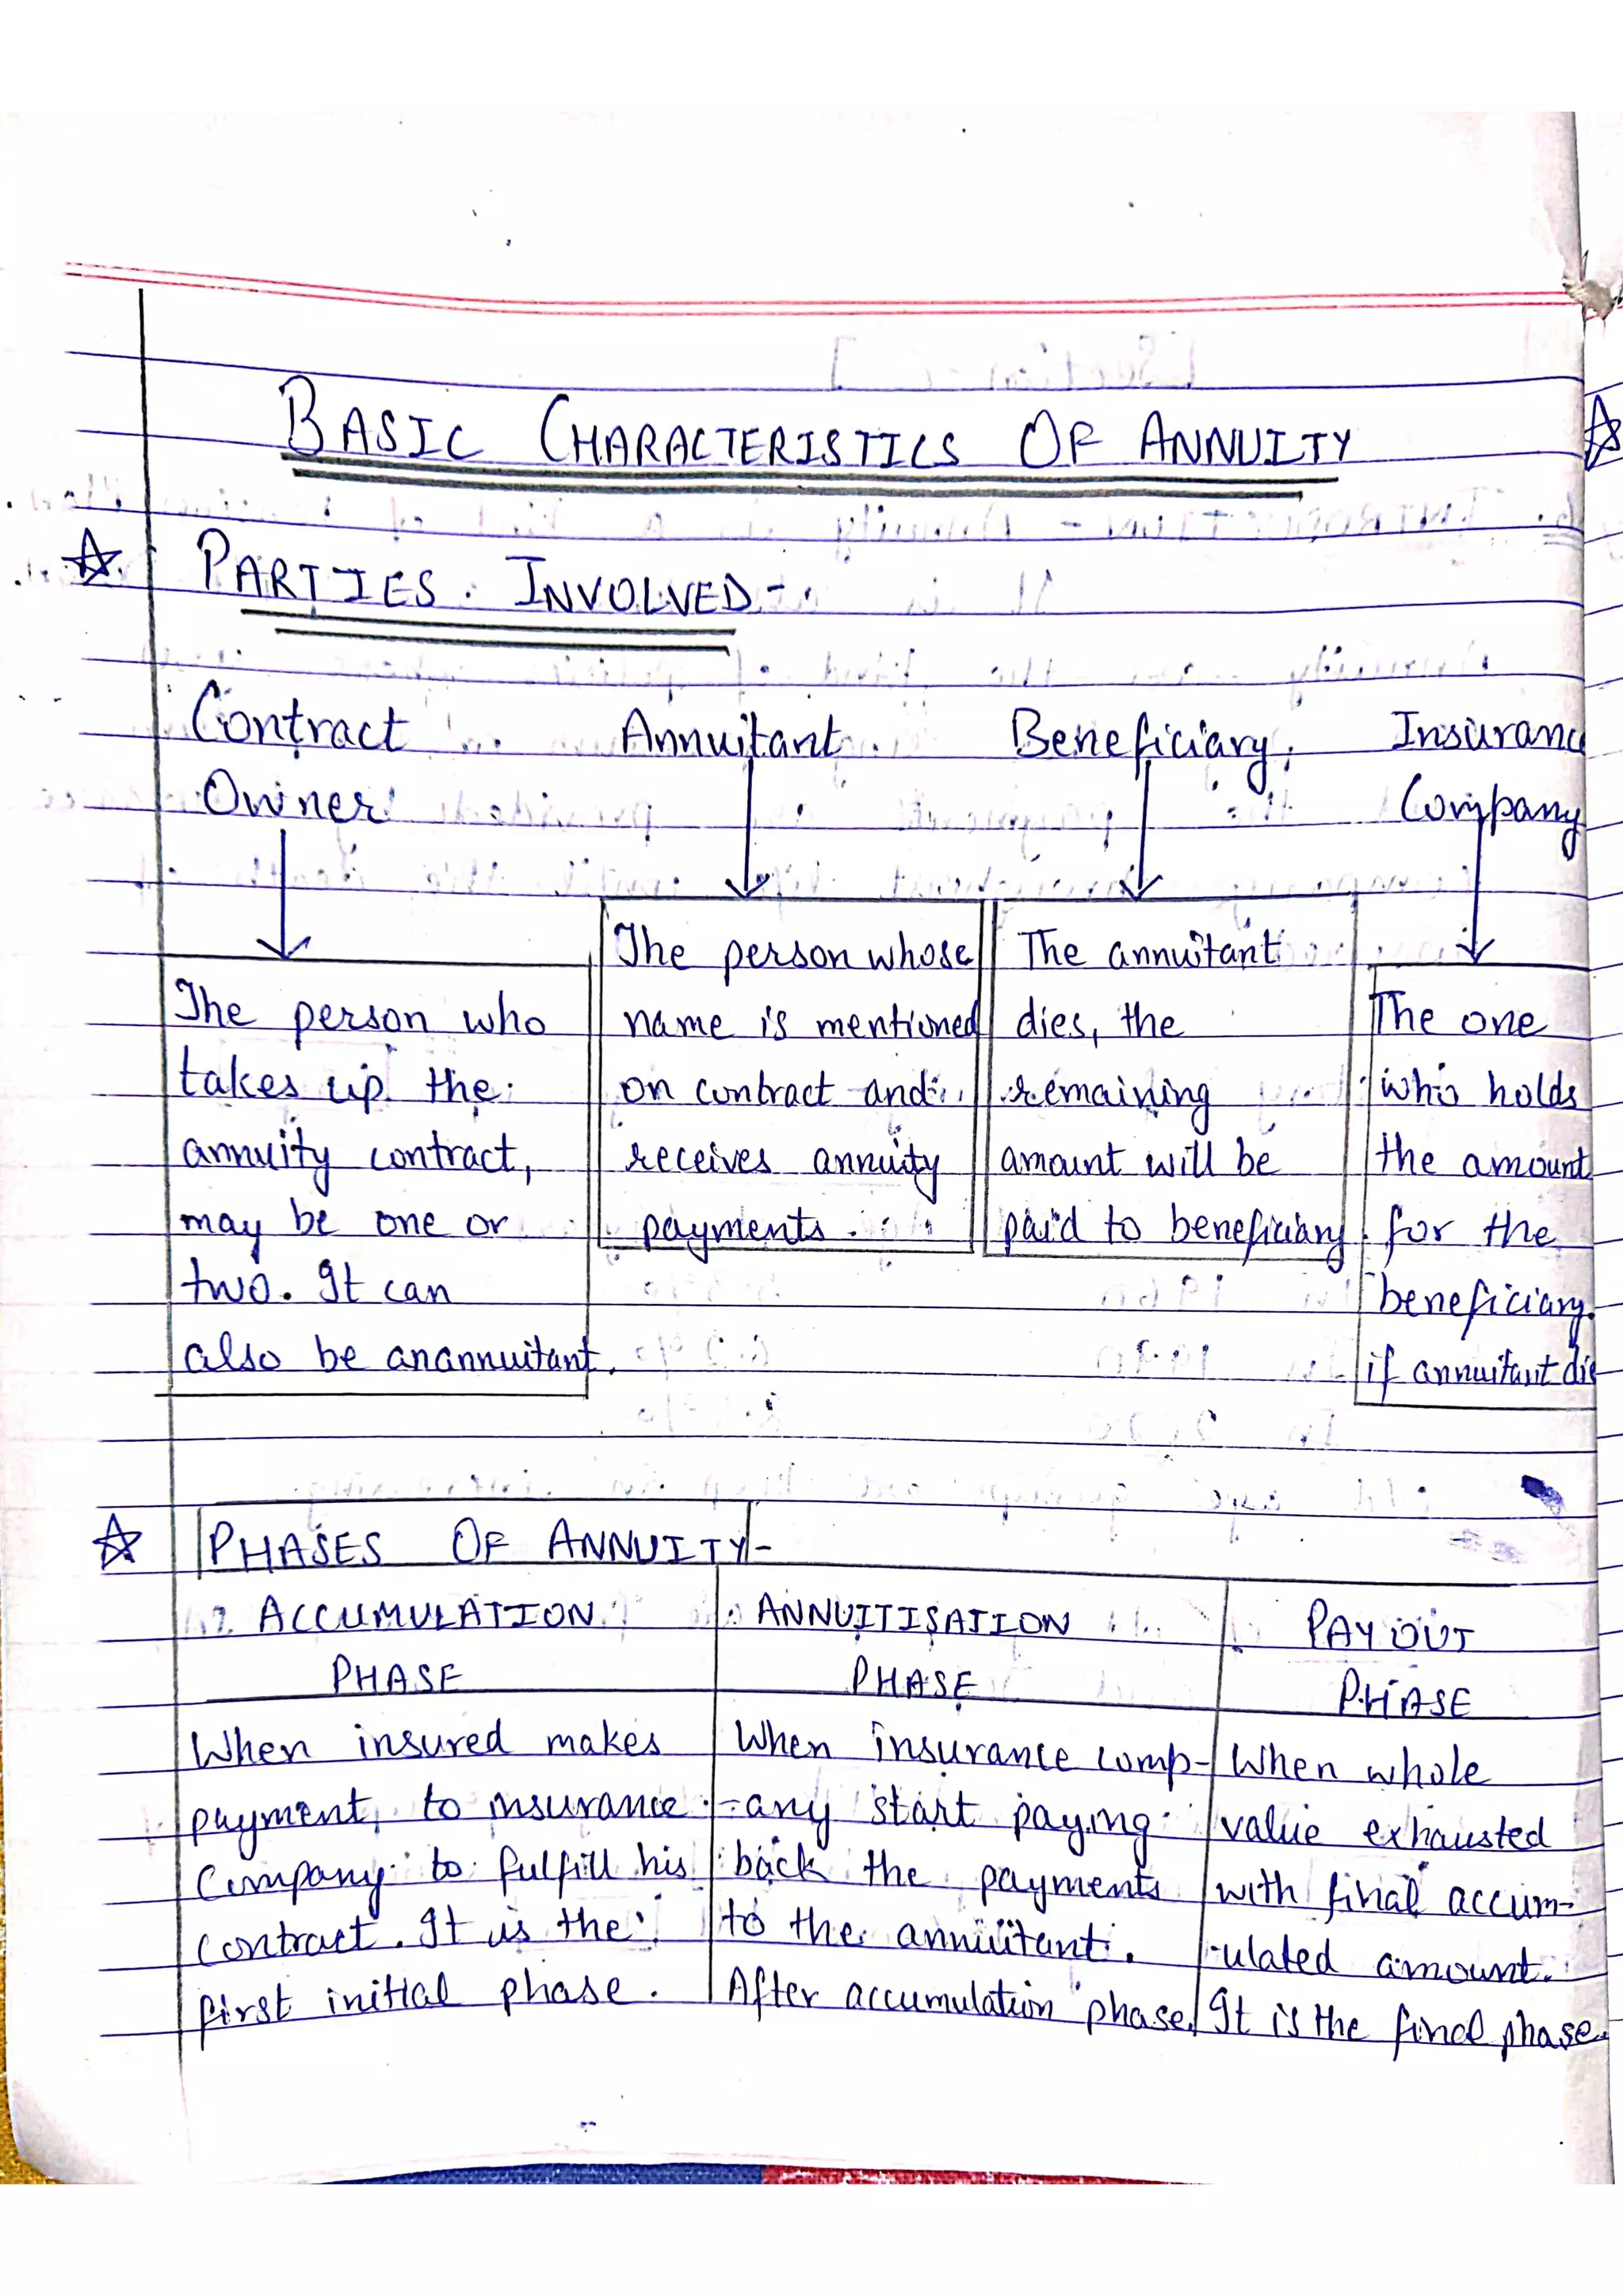 BASIC CHARACTERISTICS OF ANNUITY
PARTIES INVOLVED -
Contract Owner
Annuitant
Beneficiary
Insuranc
Company
The person who
takes up the
annuity contract,
may be one or
two. It can
also be anannuitant.
The person whose
name is mentioned
on contract and
receives annuity
payments.
The annuitant
dies, the
remaining
amount will be
paid to beneficiary
The one
who holds
the amount
for the
beneficiary.
if annuitant die
PHASES OF ANNUITY -
ACCUMULATION
PHASE
When insured makes
payment to insurance
Company to fulfill his
contract. It is the
first initial phase.
ANNUITISATION
PHASE
When insurance comp-
-any start paying
back the payments
to the annuitant.
After accumulation phase.
PAY OUT
PHASE
When whole
value exhausted
with final accum-
-ulated amount.
It is the final phase.